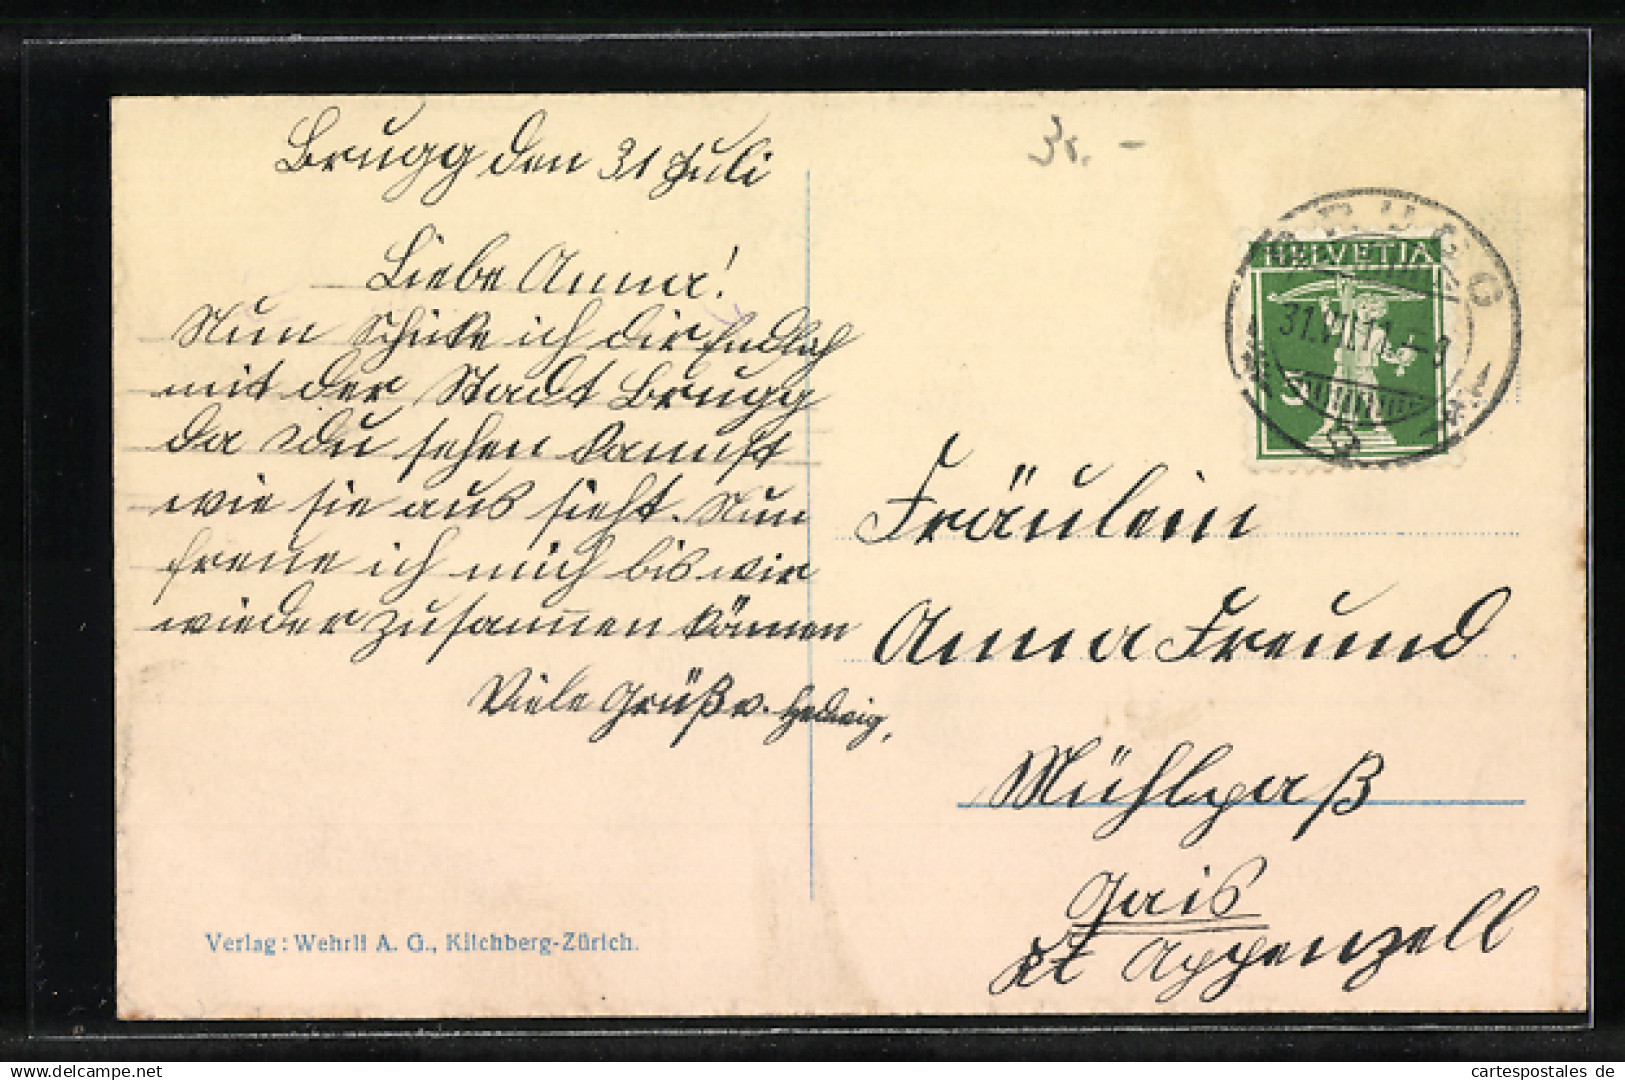 Brugg den 31 Juli
Liebe Anna!
Nun schicke ich dir endlich
mit der Stadt Brugg
da Du sehen kannst
wie sie aus sieht. Nun
freue ich mich bis wir
wieder zusammen können
Viele Grüß v. Hedwig,
Verlag: Wehrli A. G., Kilchberg-Zürich.
3.-
BRUGG
HELVETIA
31.VII.11
5
Fräulein
Anna Freund
Mühlpaß
Gais
Kt Appenzell
delcampe.net
cartespostales de